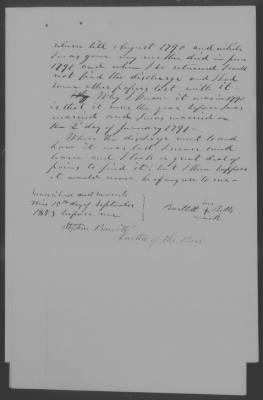 return till August 1790 and while
I was gone my mother died in June
1790 and when I so returned I could
not find the discharge and I had
some other papers lost with it -
Why I know it was in 1790
is that, it was the year before I was
married and I was married on
the 2d day of January 1791 -
When the discharge went to and
how it was lost I never could
learn and I took a great deal of
pains to find it; but I then supposed
it would never be of any use to me -
Subscribed and sworn to
this 18th day of September
before me
his
Bartlett + Betts
mark
Stephen
Justice of the Peace